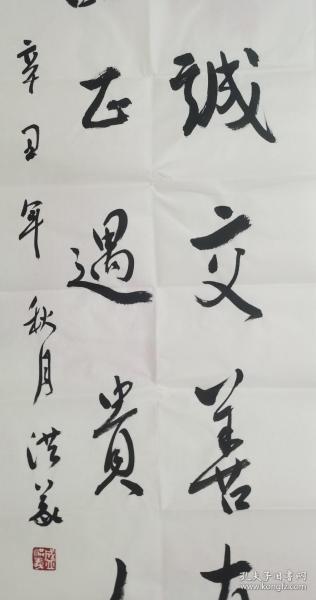 誠交善友
正遇貴人
辛丑年秋月洪義
孔夫子旧书网